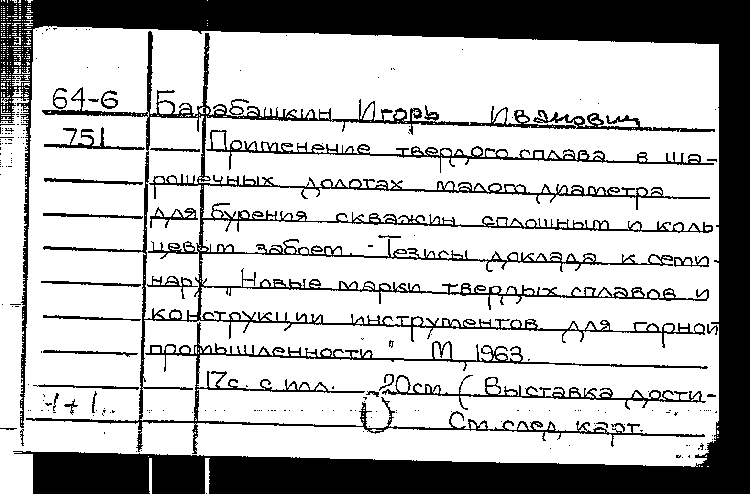 64-6 Барабашкин, Игорь Иванович
751 Применение твердого сплава в ша-
рошечных долотах малого диаметра
для бурения скважин сплошным и коль-
цевым забоем. - Тезисы доклада к семи-
нару „Новые марки твердых сплавов и
конструкции инструментов для горной
промышленности". М., 1963.
17с. с илл. 20см. (Выставка дости-
4+1.. См. след. карт.